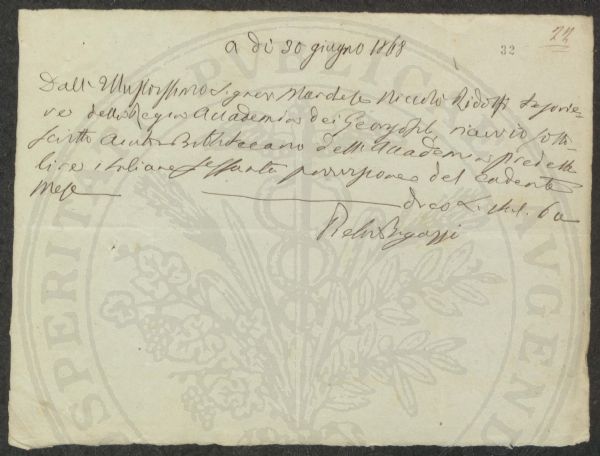 22
32
a dì 30 giugno 1868
Dall'Illustrissimo Signor Marchese Niccolò Ridolfi Tesorie-
re della Regia Accademia dei Georgofili, ricevo io sotto-
scritto Aiuto Bibliotecario dell'Accademia predetta
lire italiane sessanta provvisione del cadente
Mese dico L. ital. 60
Pietro
PROSPERITATI PUBLICAE AUGENDAE